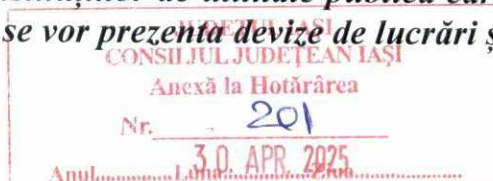 de utilitate publică
se vor prezenta devize de lucrări ș
JUDEȚUL IAȘI
CONSILIUL JUDEȚEAN IAȘI
Anexă la Hotărârea
Nr. 201
Anul Luna Ziua
30. APR. 2025